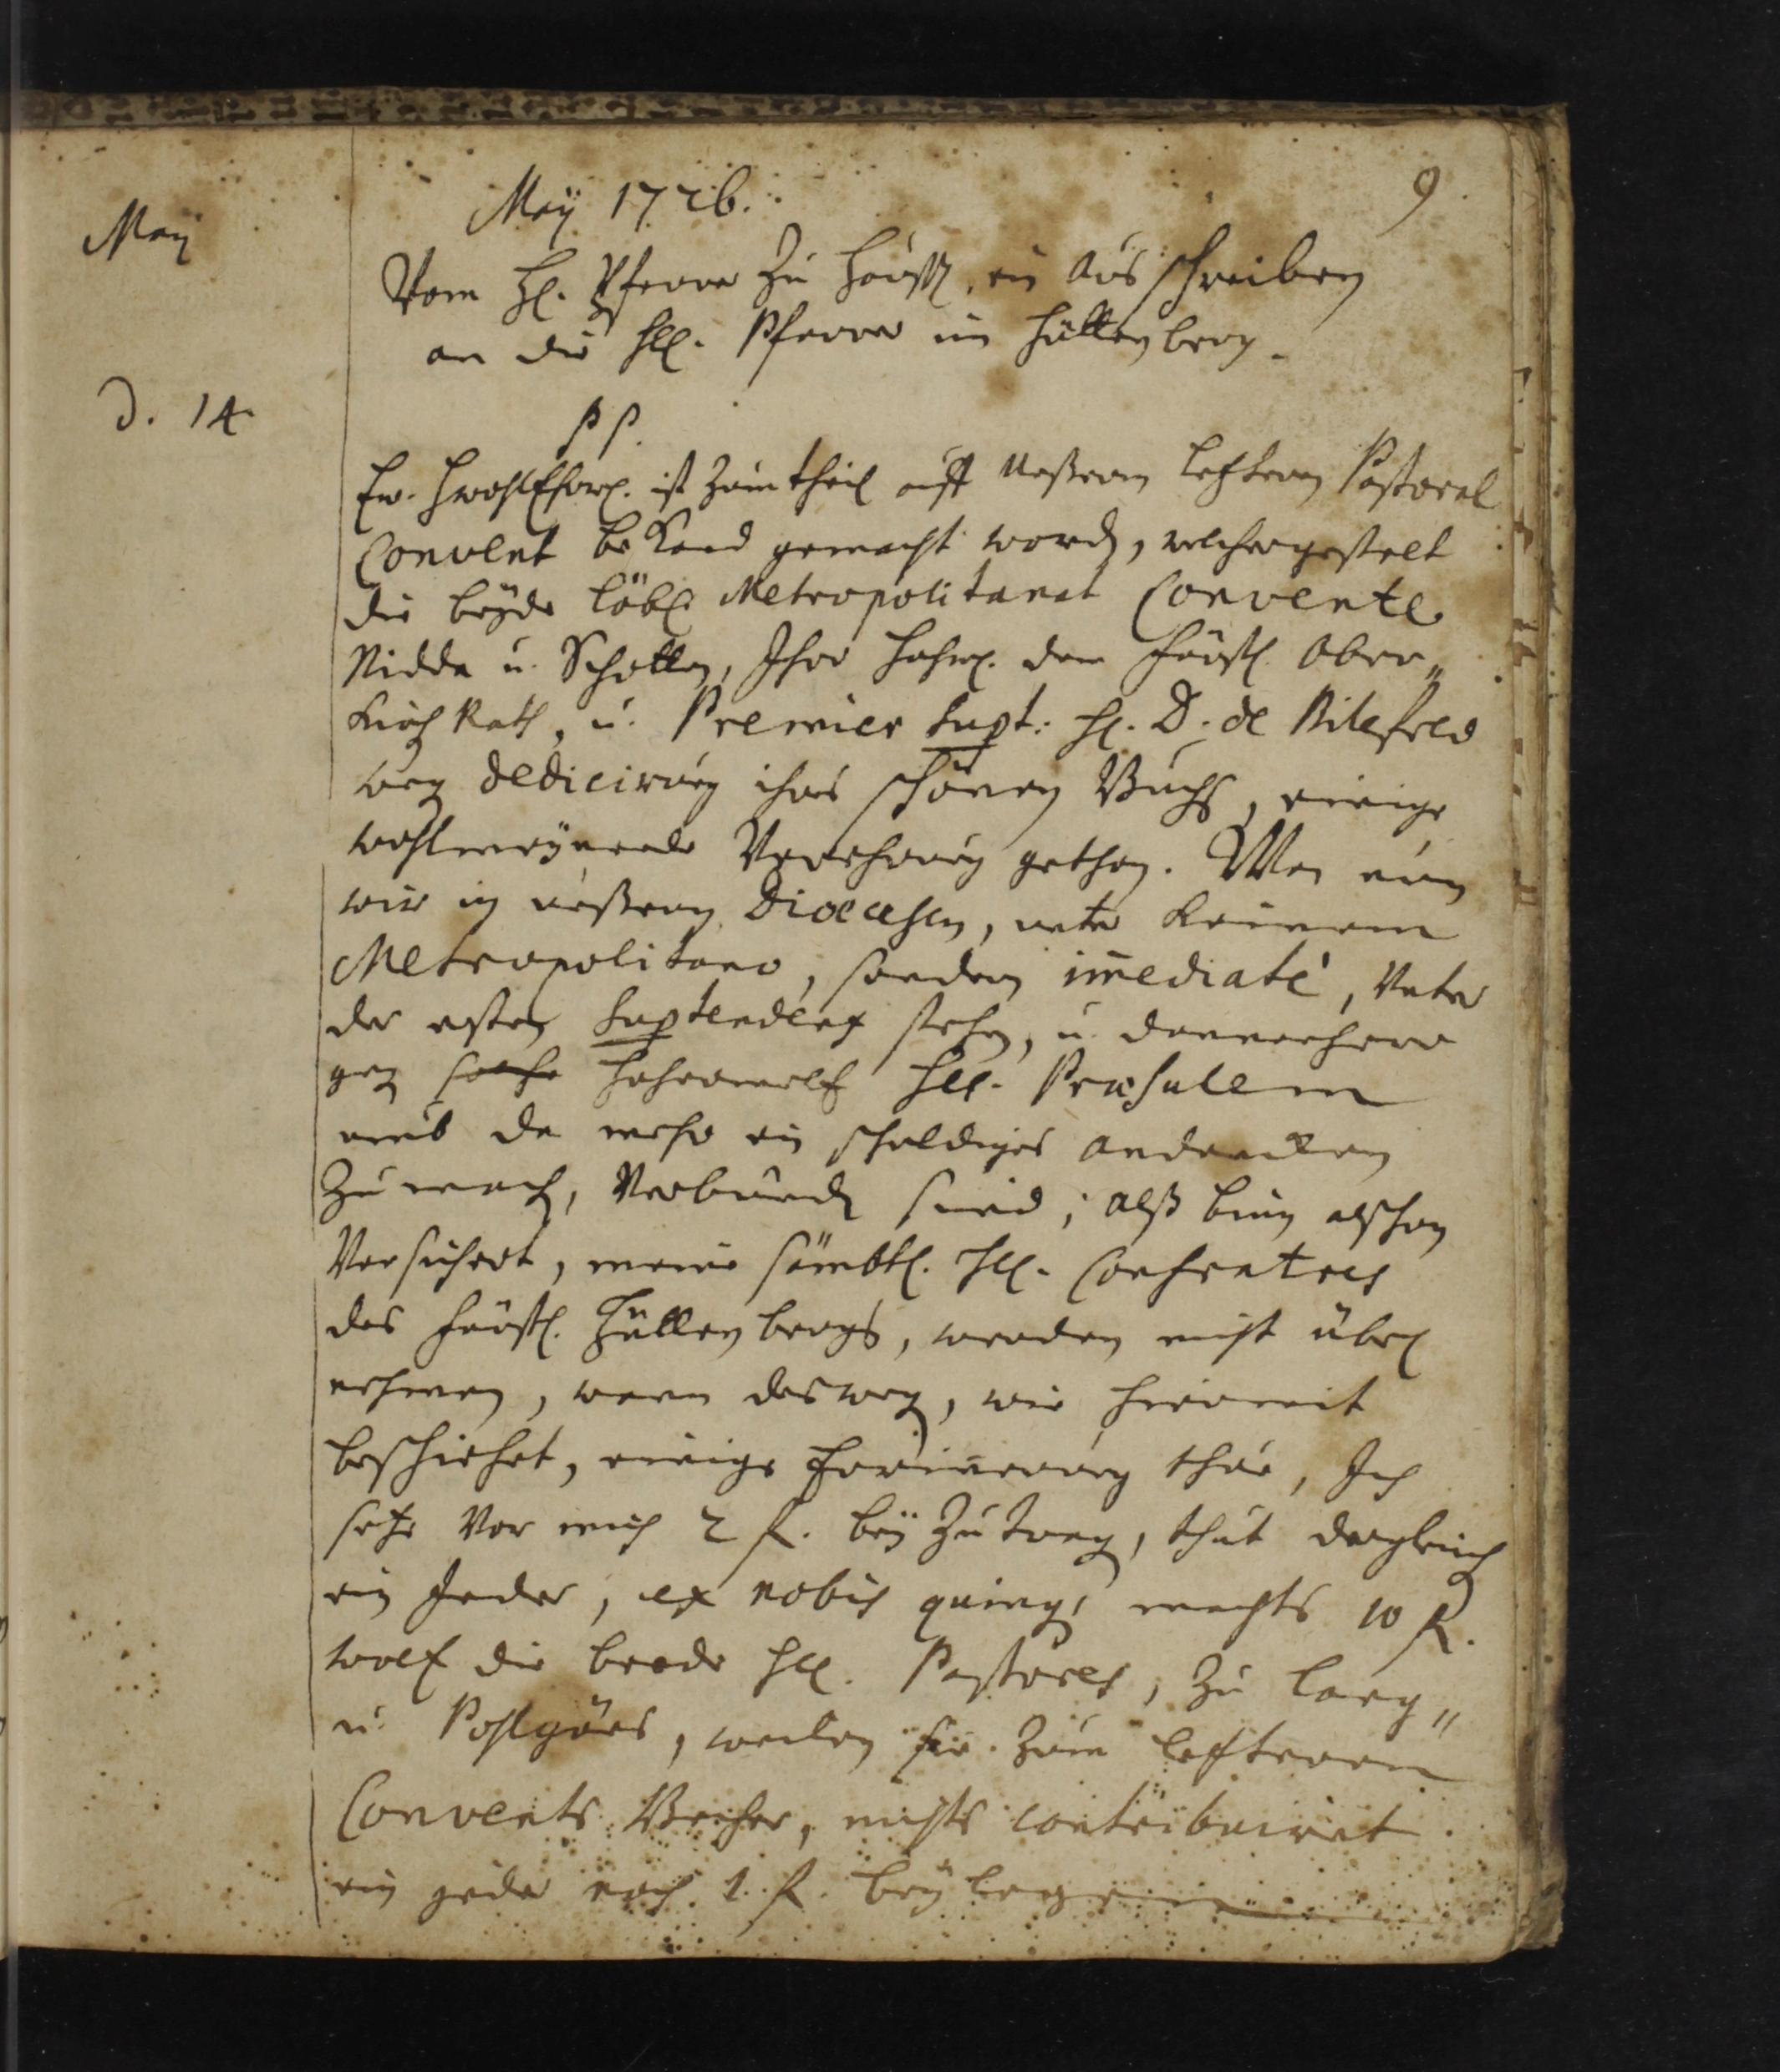 Mey 1726.
9
May
Vom H. Pfarrer Zu Haußen, ein Ausschreiben
an die HH. Pfarrer im Hüttenberg.
d. 14
P P.
Ew. HwohlEhrw. ist Zum theil auff Unßerem letsteren Pastoral
Convent bekand gemacht worden, welchergestalt
die beyde löbl. Metropolitanat Convente
Nidda u. Schotten, Ihro Hochw. dem Fürstl. Ober„
Kirch Rath, u. Premier Supt: H. D. de Bilefeld
wegen dedicirung ihres schönen Buchs, einige
wohlmeynende Verehrung gethan. Wan nun
wir in unßeren Dioecesen, unter keinem
Metropolitano, sondern im̄ediatè, Unter
der ersten Suptendenz stehen, u. dannenhero
gegen solche HH. Praesulem
umb da mehr ein schuldiges andencken
Zu machen, Verbunden sind; alß bin ich schon
Versichert, meine sämbtl. HH. Confratres
des Fürstl. Hüttenbergs, werden nicht übel
nehmen, wenn deswegen, wie hiermit
beschiehet, einige Erinnerung thue, Ich
setze Vor mich 2 f. bey Zu tragen, thut dergleichen
ein Jeder, ex nobis quinq, machts 10 f.
wolt die beede HH. Pastores, Zu Lang„
u. Pohlgöns, weilen sie zum letsterem
Convents Becher, nichts contribuiret
ein jeder noch 1. f. beylegen